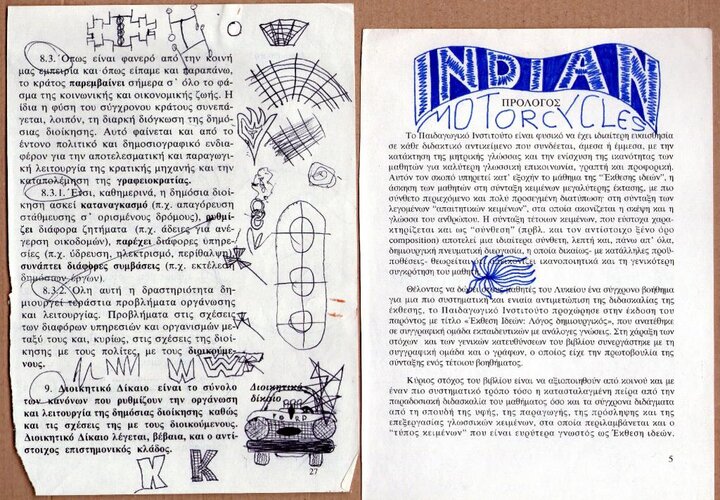 8.3. Όπως είναι φανερό από την κοινή
μας εμπειρία και όπως είπαμε και παραπάνω,
το κράτος παρεμβαίνει σήμερα σ' όλο το φά-
σμα της κοινωνικής και οικονομικής ζωής. Η
ίδια η φύση του σύγχρονου κράτους συνεπά-
γεται, λοιπόν, τη διαρκή διόγκωση της δημό-
σιας διοίκησης. Αυτό φαίνεται και από το
έντονο πολιτικό και δημοσιογραφικό ενδια-
φέρον για την αποτελεσματική και παραγωγι-
κή λειτουργία της κρατικής μηχανής και την
καταπολέμηση της γραφειοκρατίας.
8.3.1. Έτσι, καθημερινά, η δημόσια διοί-
κηση ασκεί καταναγκασμό (π.χ. απαγόρευση
στάθμευσης σ' ορισμένους δρόμους), ρυθμί-
ζει διάφορα ζητήματα (π.χ. άδειες για ανέ-
γερση οικοδομών), παρέχει διάφορες υπηρε-
σίες (π.χ. ύδρευση, ηλεκτρισμό, περίθαλψη),
συνάπτει διάφορες συμβάσεις (π.χ. εκτέλεση
δημόσιων έργων).
8.3.2. Όλη αυτή η δραστηριότητα δη-
μιουργεί τεράστια προβλήματα οργάνωσης
και λειτουργίας. Προβλήματα στις σχέσεις
των διαφόρων υπηρεσιών και οργανισμών με-
ταξύ τους και, κυρίως, στις σχέσεις της διοί-
κησης με τους πολίτες, με τους διοικούμε-
νους.
9. Διοικητικό Δίκαιο είναι το σύνολο
των κανόνων που ρυθμίζουν την οργάνωση
και λειτουργία της δημόσιας διοίκησης καθώς
και τις σχέσεις της με τους διοικούμενους.
Διοικητικό Δίκαιο λέγεται, βέβαια, και ο αντί-
στοιχος επιστημονικός κλάδος.
Διοικητικό
δίκαιο
FORD
K K
27
INDIAN
MOTORCYCLES
ΠΡΟΛΟΓΟΣ
Το Παιδαγωγικό Ινστιτούτο είναι φυσικό να έχει ιδιαίτερη ευαισθησία
σε κάθε διδακτικό αντικείμενο που συνδέεται, άμεσα ή έμμεσα, με την
κατάκτηση της μητρικής γλώσσας και την ενίσχυση της ικανότητας των
μαθητών για καλύτερη γλωσσική επικοινωνία, γραπτή και προφορική.
Αυτόν τον σκοπό υπηρετεί κατ' εξοχήν το μάθημα της "Έκθεσης ιδεών", η
άσκηση των μαθητών στη σύνταξη κειμένων μεγαλύτερης έκτασης, με πιο
σύνθετο περιεχόμενο και πολύ προσεγμένη διατύπωση: στη σύνταξη των
λεγομένων "απαιτητικών κειμένων", στα οποία ακονίζεται η σκέψη και η
γλώσσα του ανθρώπου. Η σύνταξη τέτοιων κειμένων, που εύστοχα χαρα-
κτηρίζεται και ως "σύνθεση" (πρβλ. και τον αντίστοιχο ξένο όρο
composition) αποτελεί μια ιδιαίτερα σύνθετη, λεπτή και, πάνω απ' όλα,
δημιουργική πνευματική διεργασία, η οποία δικαίως- με κατάλληλες προϋ-
ποθέσεις- θεωρείται ότι ικανοποιητικά και τη γενικότερη
συγκρότηση του μαθητή.
Θέλοντας να δώσει στους μαθητές του Λυκείου ένα σύγχρονο βοήθημα
για μια πιο συστηματική και ενιαία αντιμετώπιση της διδασκαλίας της
έκθεσης, το Παιδαγωγικό Ινστιτούτο προχώρησε στην έκδοση του
παρόντος με τίτλο «Έκθεση Ιδεών: Λόγος δημιουργικός», που ανατέθηκε
σε συγγραφική ομάδα εκπαιδευτικών με ανάλογες γνώσεις. Στη χάραξη των
στόχων και των γενικών κατευθύνσεων του βιβλίου συνεργάστηκε με τη
συγγραφική ομάδα και ο γράφων, ο οποίος είχε την πρωτοβουλία της
σύνταξης ενός τέτοιου βοηθήματος.
Κύριος στόχος του βιβλίου είναι να αξιοποιηθούν από κοινού και με
έναν πιο συστηματικό τρόπο τόσο η κατασταλαγμένη πείρα από την
παραδοσιακή διδασκαλία του μαθήματος όσο και τα σύγχρονα διδάγματα
από τη σπουδή της υφής, της παραγωγής, της πρόσληψης και της
επεξεργασίας γλωσσικών κειμένων, στα οποία περιλαμβάνεται και ο
"τύπος κειμένων" που είναι ευρύτερα γνωστός ως Έκθεση ιδεών.
5